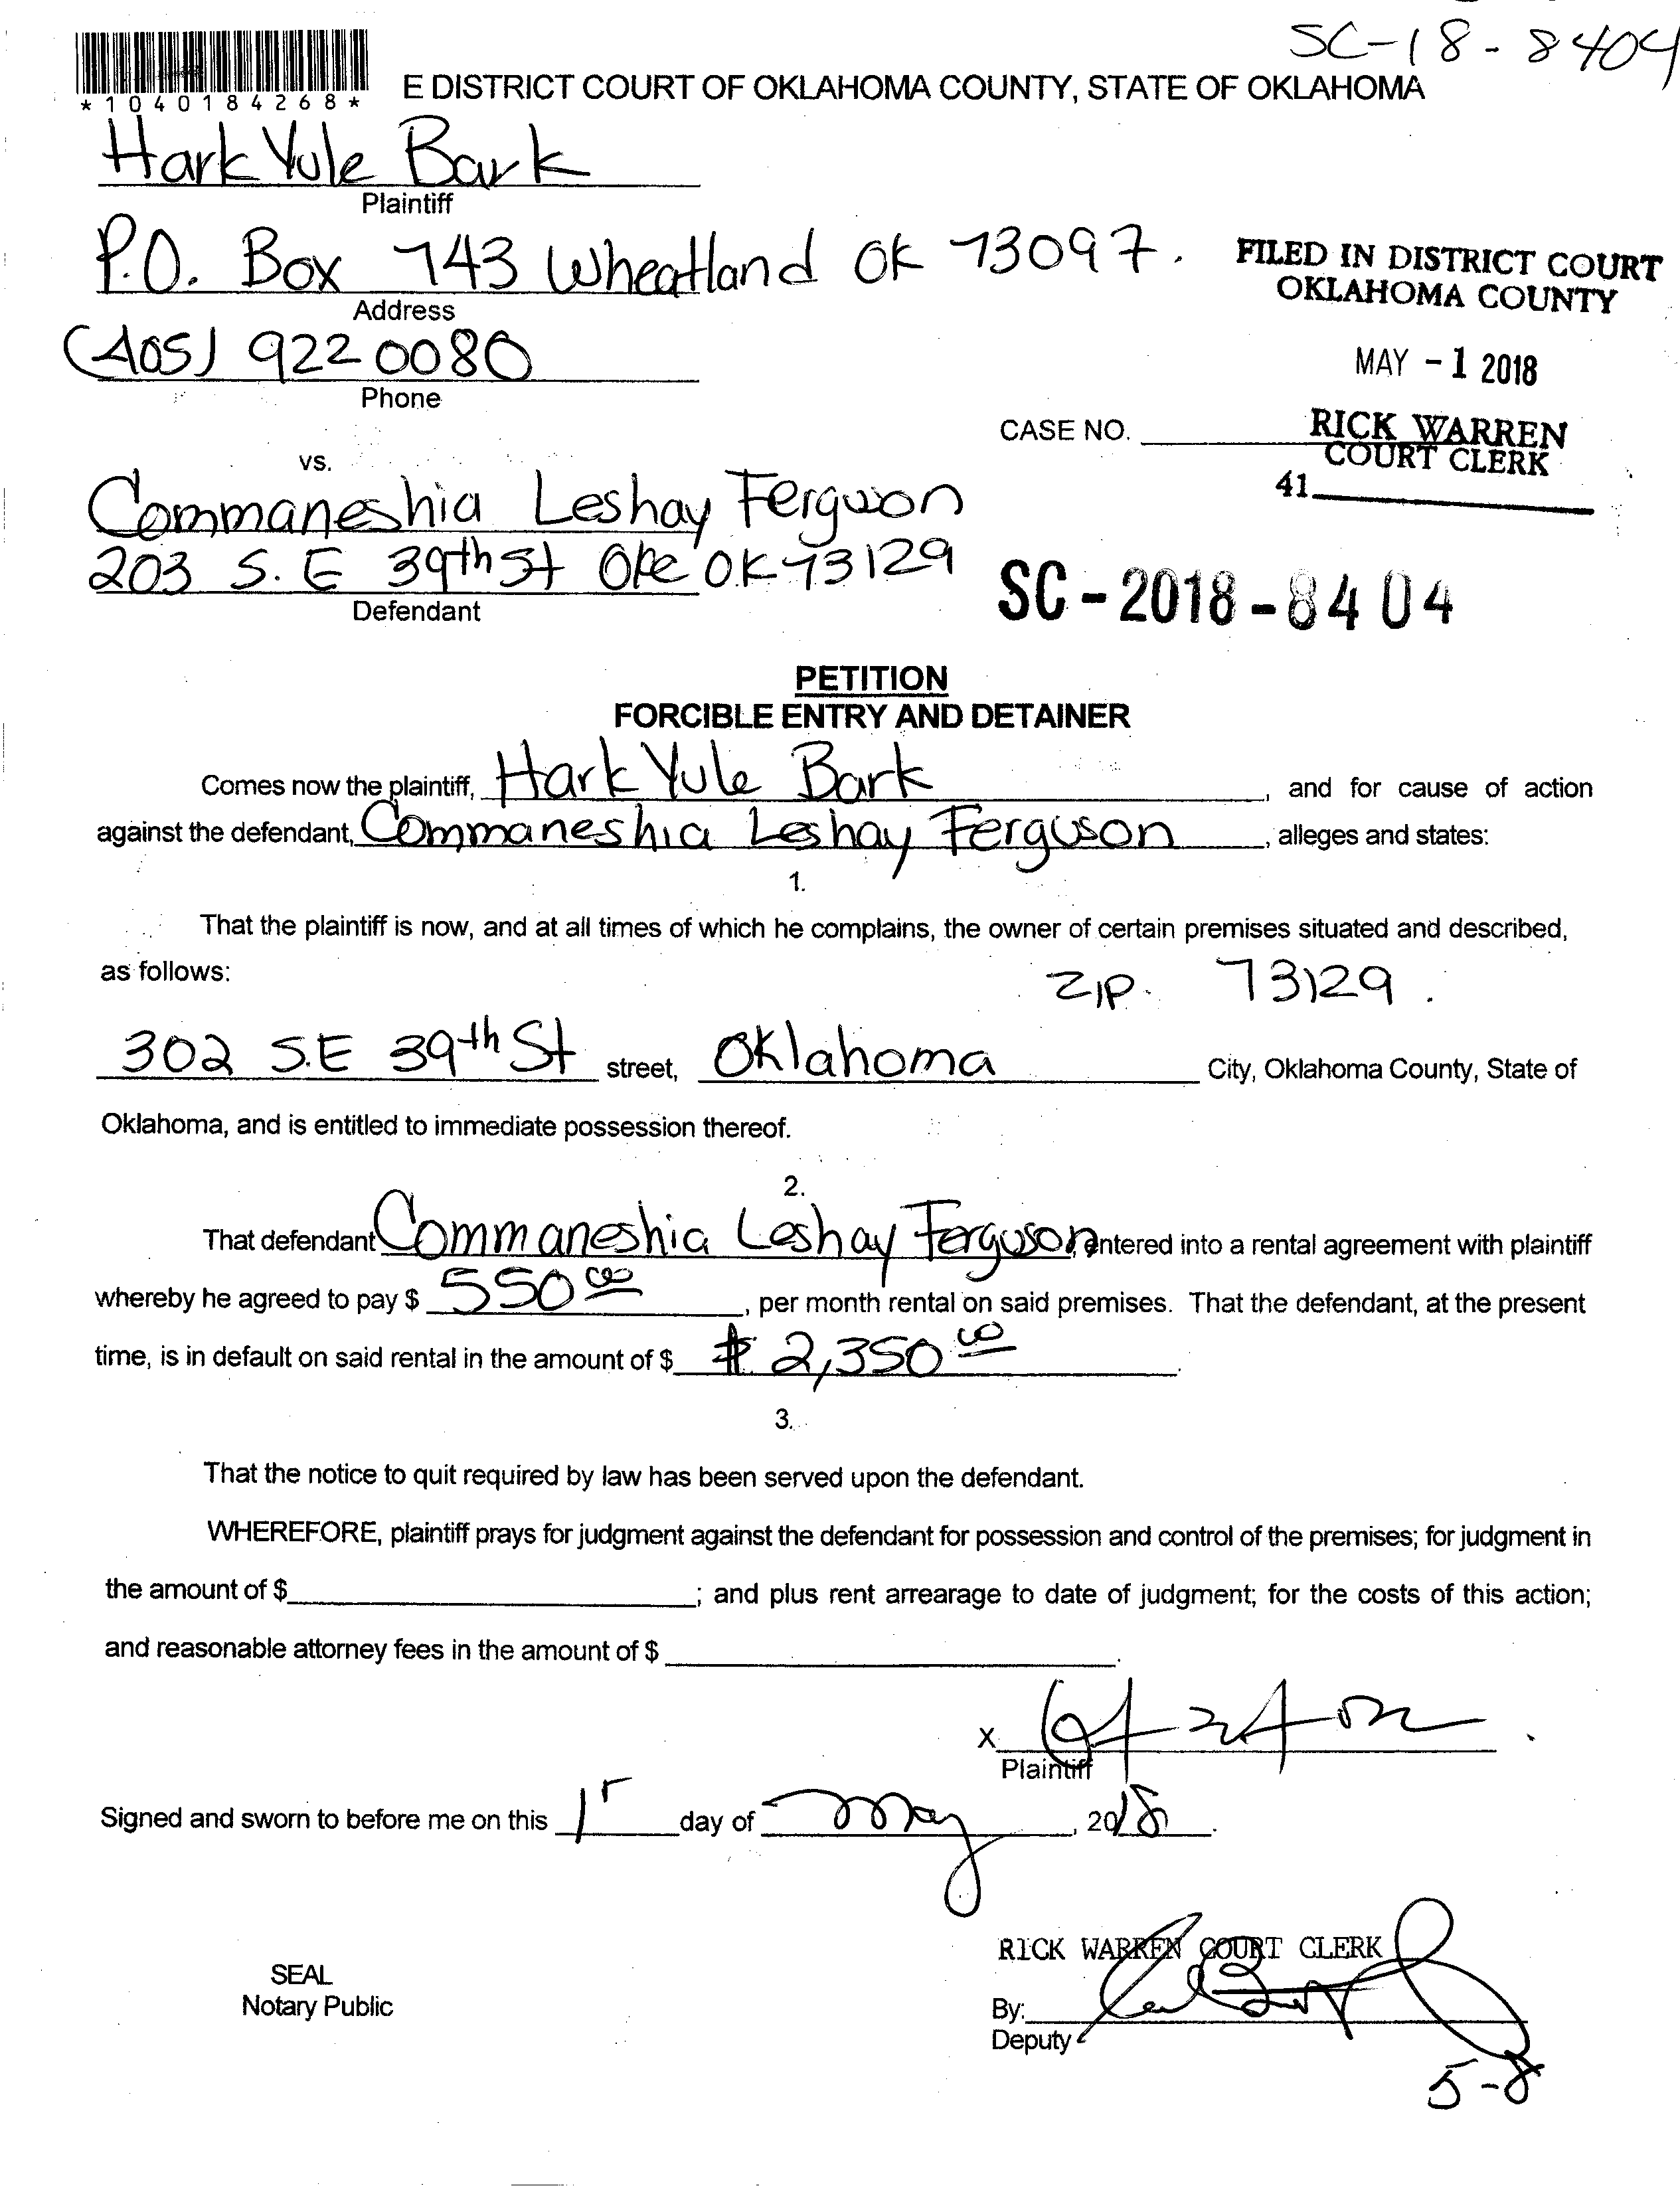 SC-18-8404
*1040184268*
E DISTRICT COURT OF OKLAHOMA COUNTY, STATE OF OKLAHOMA
Hark Yule Bark
Plaintiff
P.O. Box 743 Wheatland OK 73097.
Address
FILED IN DISTRICT COURT
OKLAHOMA COUNTY
(405) 922 0080
Phone
MAY -1 2018
CASE NO.
RICK WARREN
COURT CLERK
41
vs.
Commaneshia Leshay Ferguson
203 S.E 39th St OKC OK 73129
Defendant
SC-2018-8404
PETITION
FORCIBLE ENTRY AND DETAINER
Comes now the plaintiff, Hark Yule Bark, and for cause of action
against the defendant, Commaneshia Leshay Ferguson, alleges and states:
1.
That the plaintiff is now, and at all times of which he complains, the owner of certain premises situated and described,
as follows:
ZIP. 73129.
302 S.E 39th St street, Oklahoma City, Oklahoma County, State of
Oklahoma, and is entitled to immediate possession thereof.
2.
That defendant Commaneshia Leshay Ferguson, entered into a rental agreement with plaintiff
whereby he agreed to pay $ 550 00, per month rental on said premises. That the defendant, at the present
time, is in default on said rental in the amount of $ $ 2,350 00.
3.
That the notice to quit required by law has been served upon the defendant.
WHEREFORE, plaintiff prays for judgment against the defendant for possession and control of the premises; for judgment in
the amount of $; and plus rent arrearage to date of judgment; for the costs of this action;
and reasonable attorney fees in the amount of $.
X
Plaintiff
Signed and sworn to before me on this 1 day of May, 2018.
RICK WARREN COURT CLERK
SEAL
Notary Public
By:
Deputy
5-8